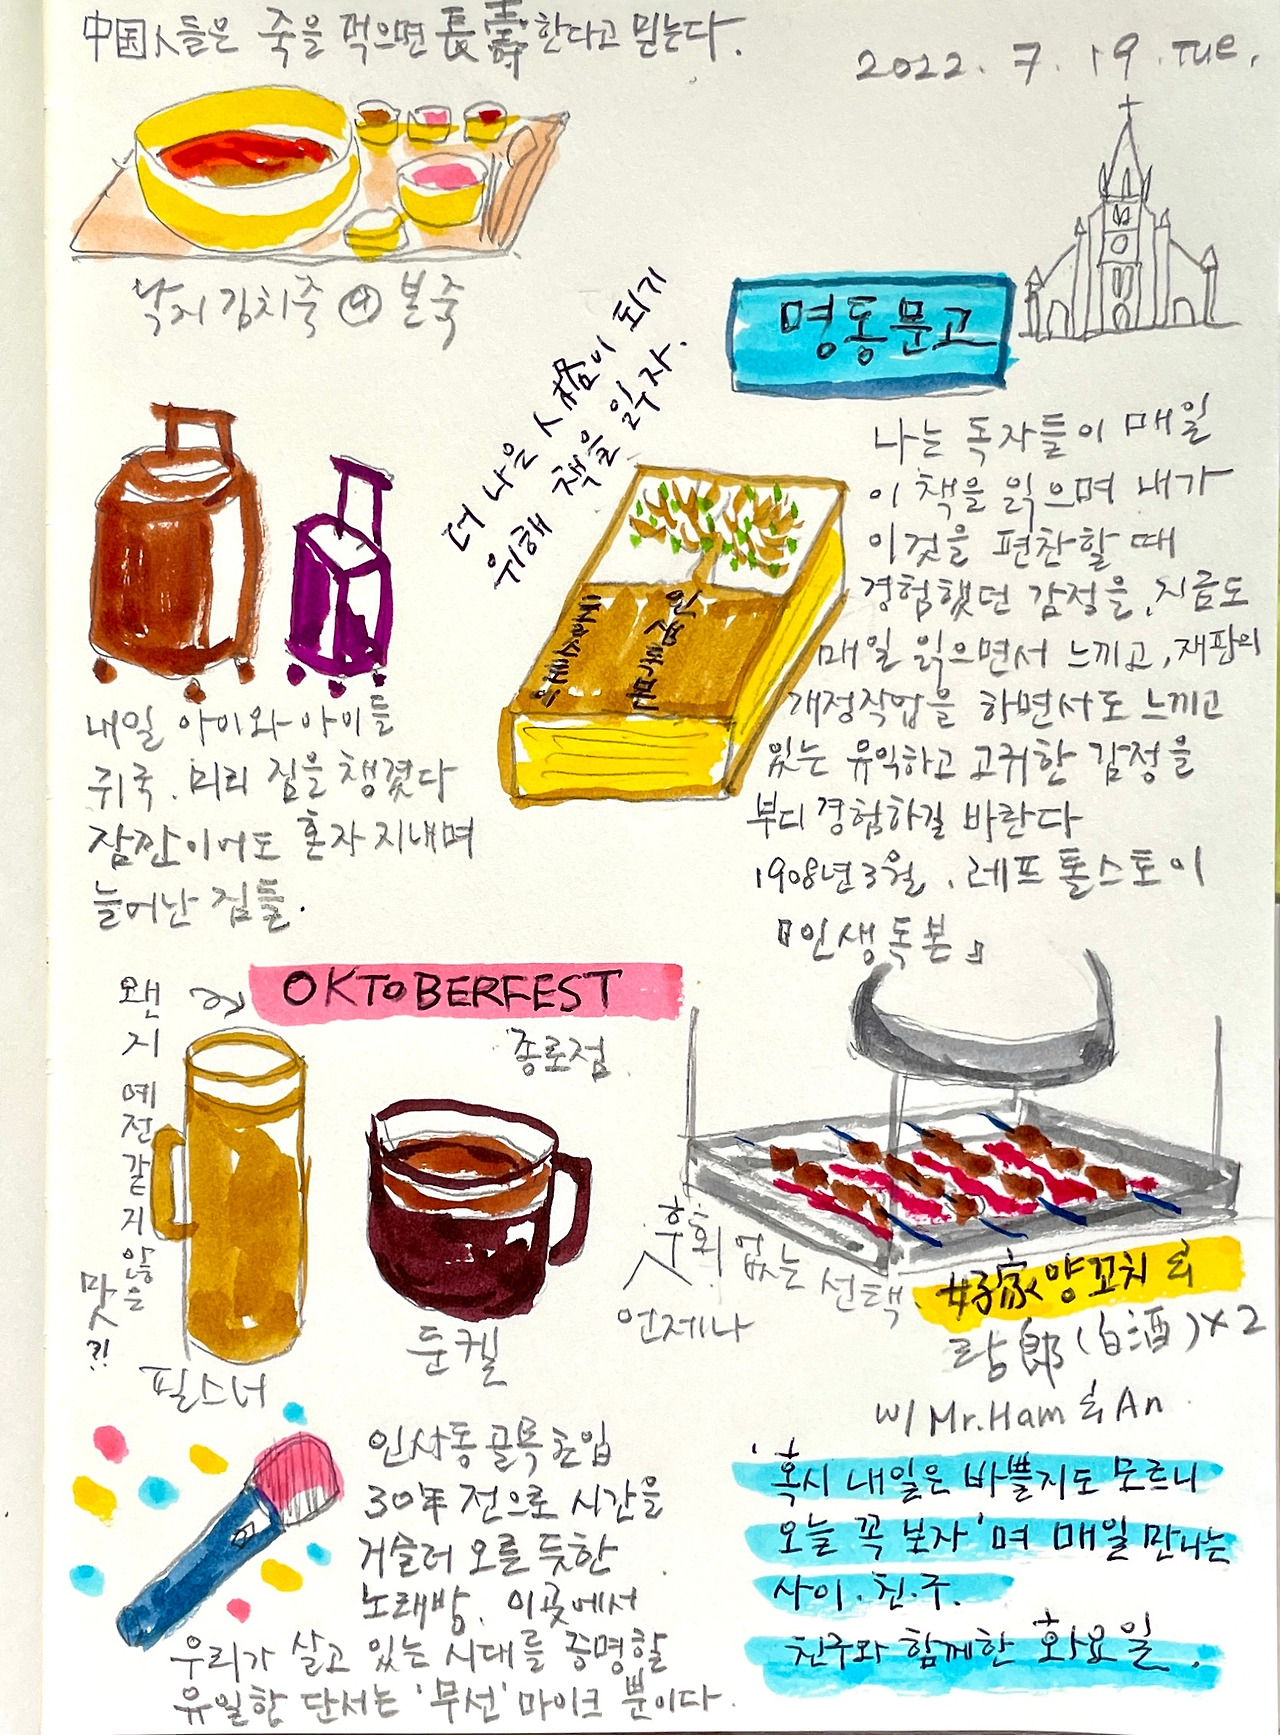 中国人들은 죽을 먹으면 長壽한다고 믿는다.
2022. 7. 19. Tue.
낙지김치죽 @ 본죽
더 나은 人格이 되기
위해 책을 읽자.
명동문고
나는 독자들이 매일
이 책을 읽으며 내가
이것을 편찬할 때
경험했던 감정을, 지금도
매일 읽으면서 느끼고, 재판의
개정작업을 하면서도 느끼고
있는 유익하고 고귀한 감정을
부디 경험하길 바란다
1908년 3월. 레프 톨스토이
『인생독본』
내일 아이와 아이들
귀국. 미리 짐을 챙겼다
잠깐이어도 혼자 지내며
늘어난 짐들.
OKTOBERFEST
종로점.
왠지 예전 같지 않은
맛?!
필스너
둔켈
언제나 후회 없는 선택.
家 양꼬치 &
郎 (白酒) x 2
w/ Mr. Ham & An
인사동 골목 초입
30年 전으로 시간을
거슬러 오른 듯한
노래방. 이곳에서
우리가 살고 있는 시대를 증명할
유일한 단서는 '무선' 마이크 뿐이다.
'혹시 내일은 바쁠지도 모르니
오늘 꼭 보자'며 매일 만나는
사이. 친.구.
친구와 함께한 화요일.